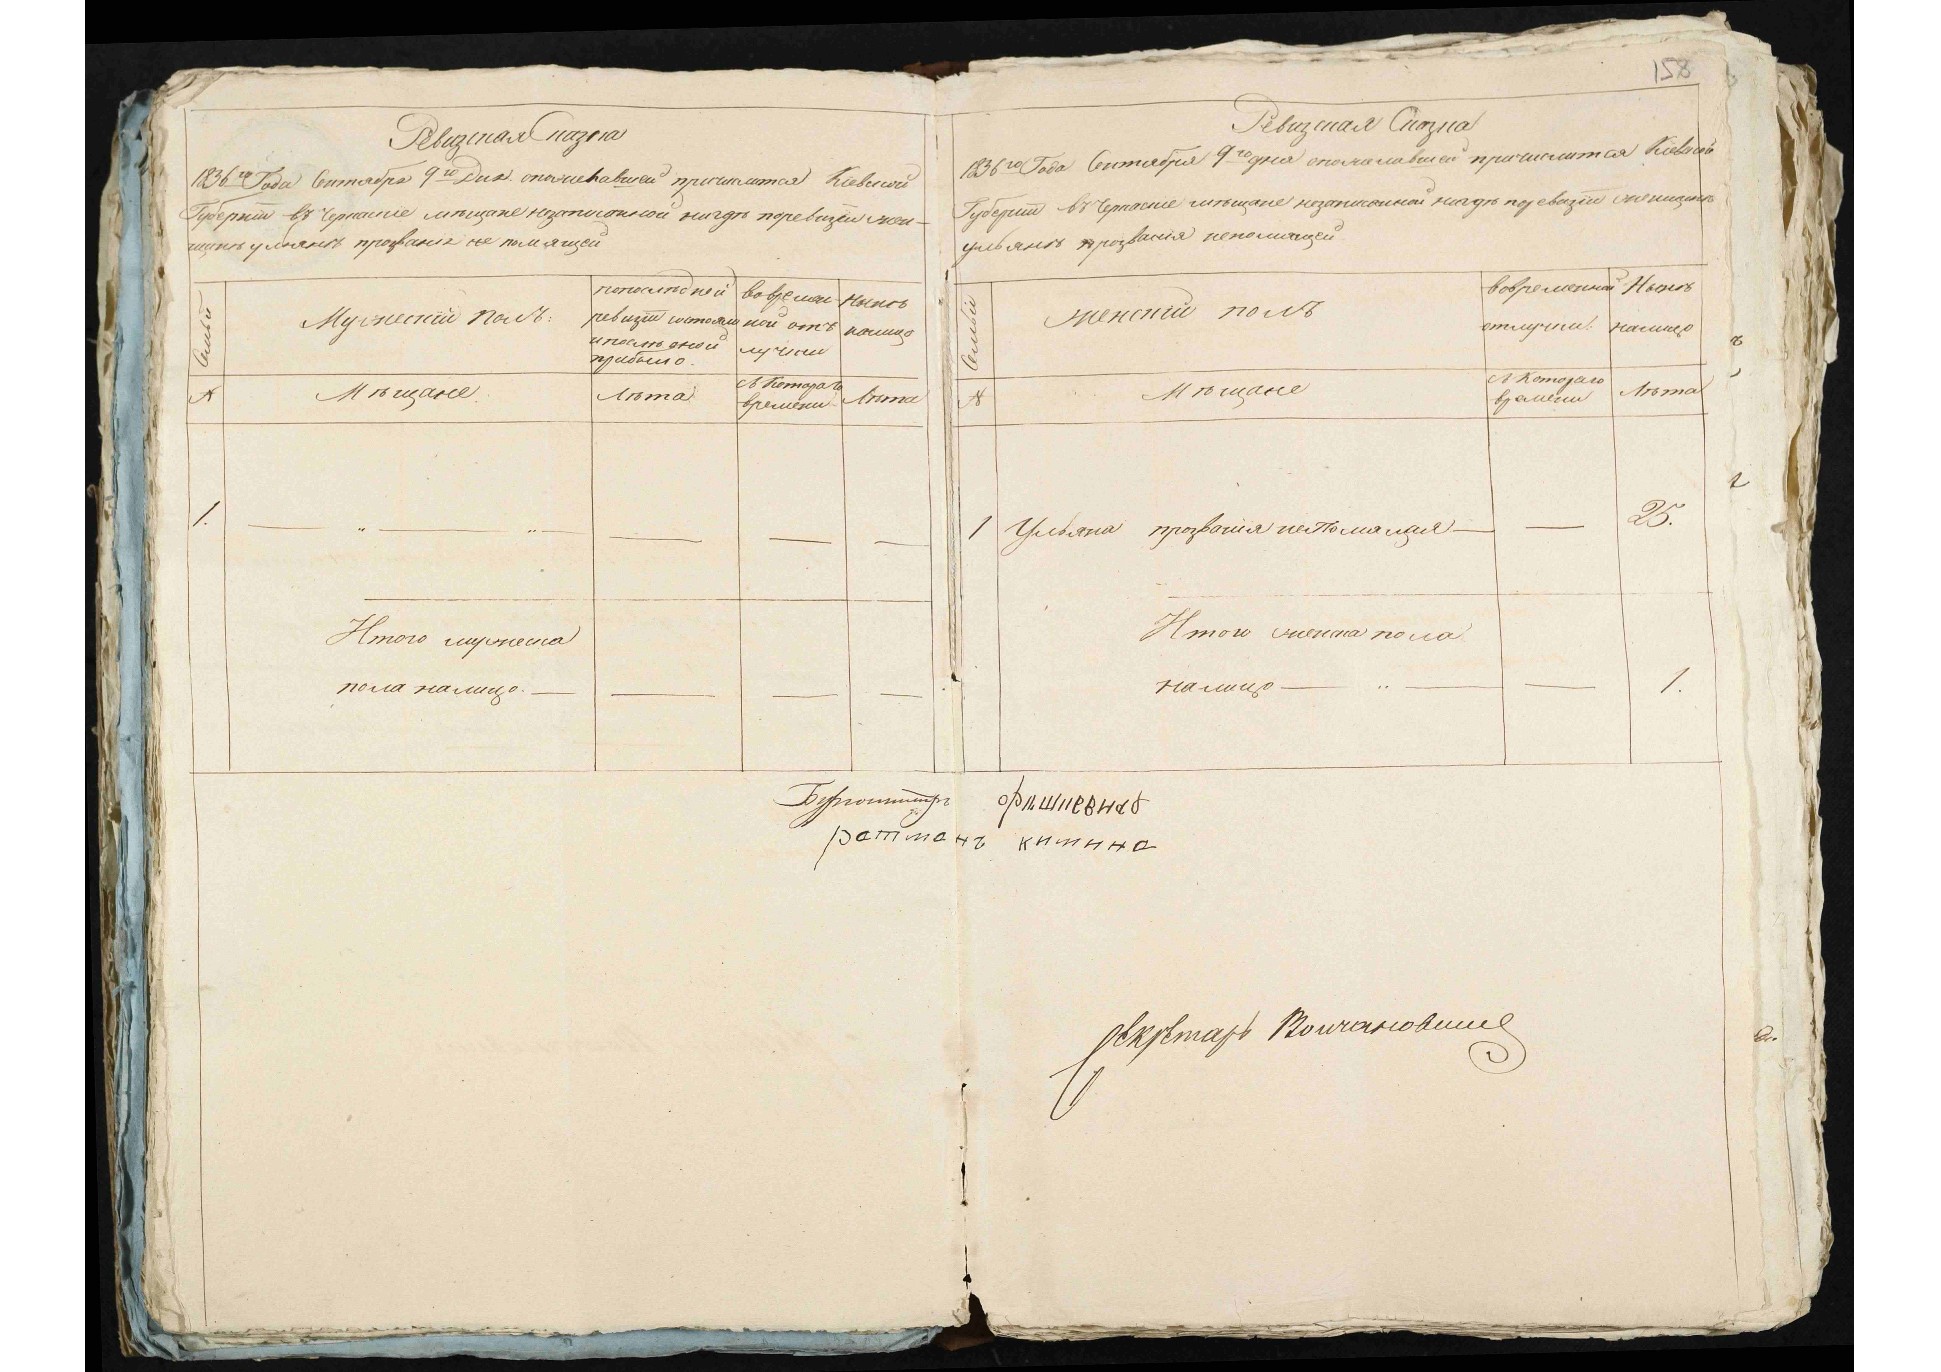 158
Ревизская Сказка
1836го Года Сентября 9го Дня. о причислится Киевской
Губернiи въ Черкаскiе мѣщане незаписанной нигдѣ поревизiи жен-
щинѣ ульянѣ прозванiя не помящей
Семьи
Мужескiй полъ:
попослѣдней
ревизiи состояло
и послѣ оной
прибыло.
вовремен-
ной отъ
лучки
Нынѣ
налицо
№
Мѣщане
Лѣта
Съ Котораго
времени
Лѣта
1.
Итого мужеска
пола налицо.
Ревизская Сказка
1836го Года Сентября 9го дня о причислится Киевской
Губернiи въ Черкаскiе мѣщане незаписанной нигдѣ поревизiи женщинѣ
ульянѣ прозванiя непомящей
Семьи
женскiй полъ
вовременной
отлучки.
Нынѣ
налицо
№
Мѣщане
Съ Котораго
времени
Лѣта
1 Ульяна прозванiя непомящая 25.
Итого женска пола
налицо 1.
Бургомистръ
ратманъ китина
Секретарь